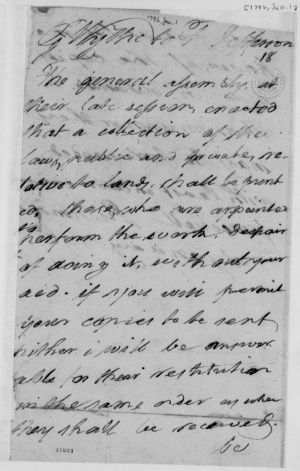 1796 Jan. 1
[1796, Jan. 1]
G Wythe to T Jefferson
18
The general assembly, at
their late session, enacted
that a collection of the
laws, public and private, re-
lative to lands, shall be print
ed. those, who are appointed
to perform the work, despair
of doing it, without your
aid. if you will permit
your copies to be sent
hither i will be answer
able for their restitution
in the same order as when
they shall be received.
17003